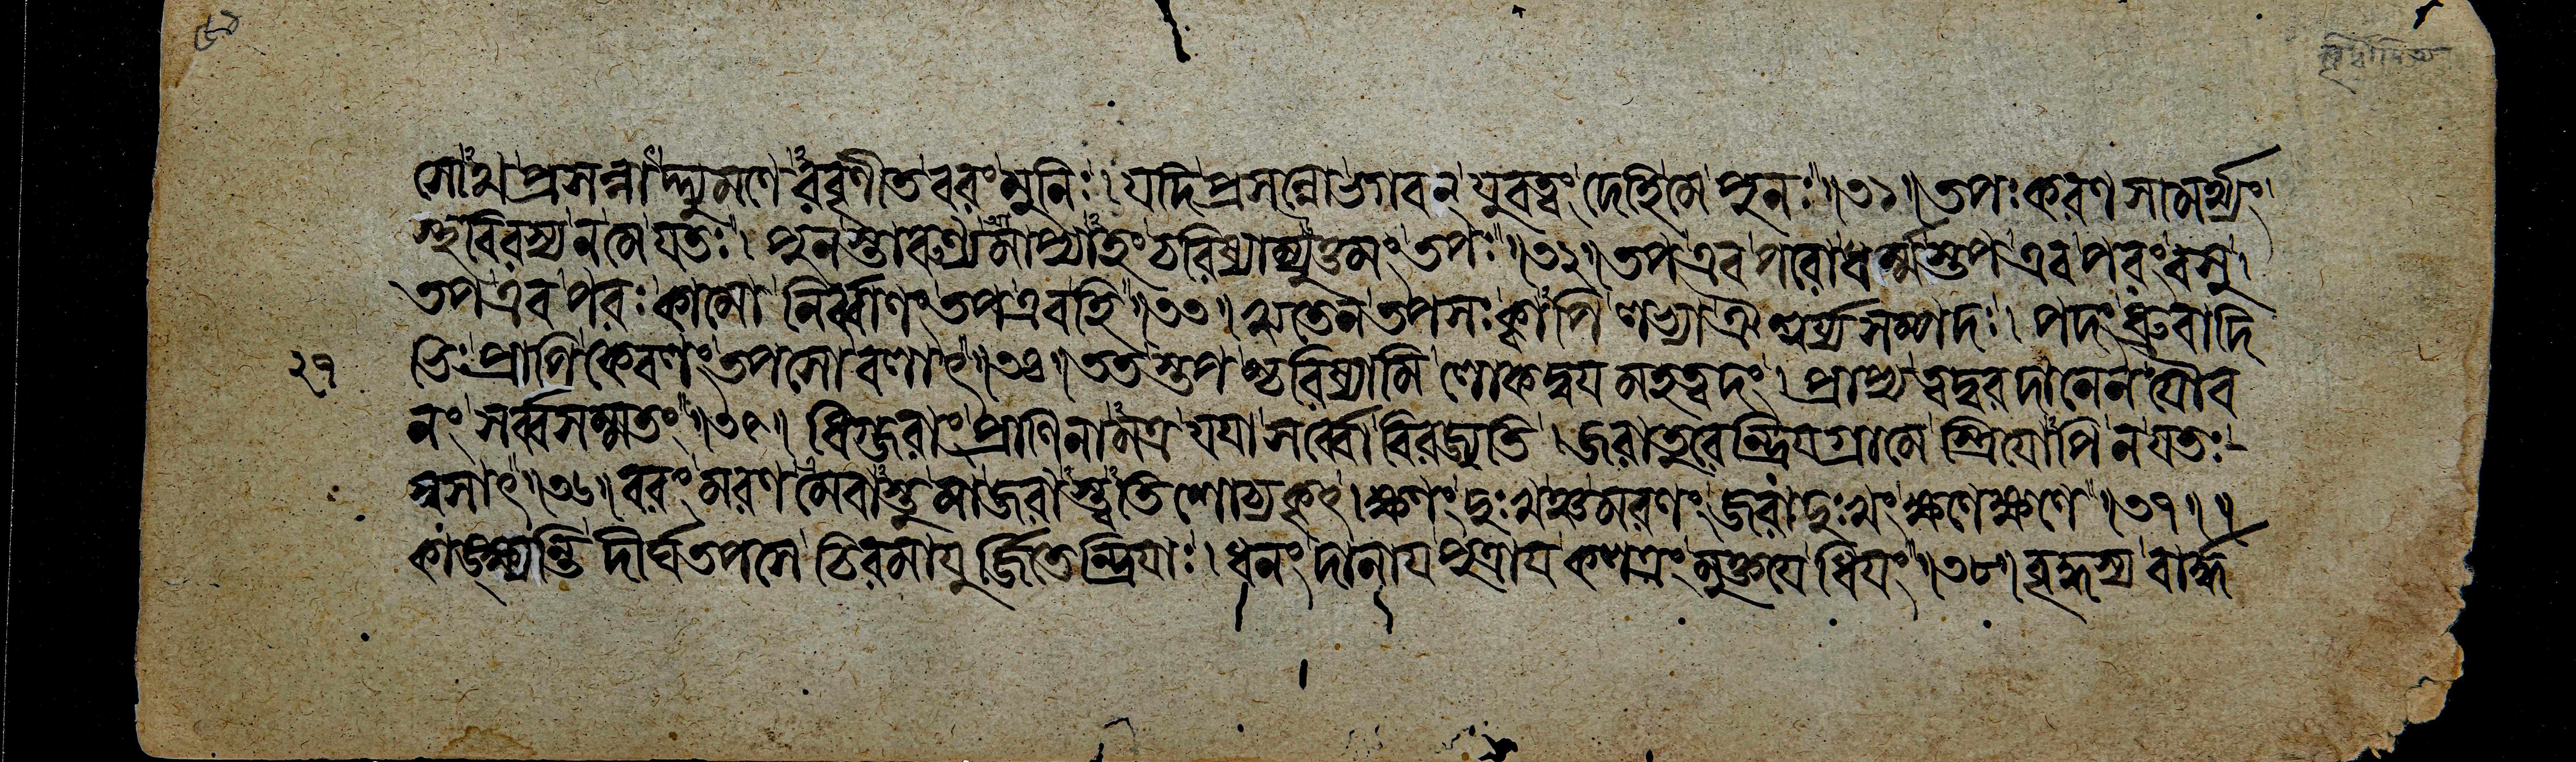 সোঽথ প্রসন্নাদ্দ্যুমণেরবৃণীত বরং মুনিঃ। যদি প্রসন্নো ভগবন্ যুবত্বং দেহি মে পুনঃ॥৩১॥ তপঃকরণসামর্থ্যং
স্থবিরস্য ন মে যতঃ। পুনস্তারুণ্যমাপ্যাহং চরিষ্যাম্যুত্তমং তপঃ॥৩২॥ তপ এব পরো ধর্ম্মস্তপ এব পরং বসু।
তপ এব পরঃ কামো নির্ব্বাণং তপ এব হি॥৩৩॥ ঋতে ন তপসঃ ক্বাপি লভ্যা ঐশ্বর্য্যসম্পদঃ। পদং ধ্রুবাদি
২৭ ভিঃ প্রাপি কেবলং তপসো বলাৎ॥৩৪॥ ততস্তপশ্চরিষ্যামি লোকদ্বয়মহত্বদং। প্রাপ্য ত্বদ্বরদানেন যৌব
নং সর্ব্বসম্মতং॥৩৫॥ ধিগ্জরাং প্রাণিনামত্র যয়া সর্ব্বো বিরজ্যতি। জরাতুরেন্দ্রিয়গ্রামে স্ত্রিয়োপি ন যতঃ
স্বসাৎ॥৩৬॥ বরং মরণমেবাস্তু মা জরাস্ত্বতিশোচ্যকৃৎ। ক্ষণং দুঃখঞ্চ মরণং জরা দুঃখং ক্ষণে ক্ষণে॥৩৭॥
কাঙ্ক্ষন্তি দীর্ঘতপসে চিরমায়ুর্জ্জিতেন্দ্রিয়াঃ। ধনং দানায় পুত্রায় কলত্রং মুক্তয়ে ধিয়ং॥৩৮॥ বৃদ্ধস্য বার্দ্ধ